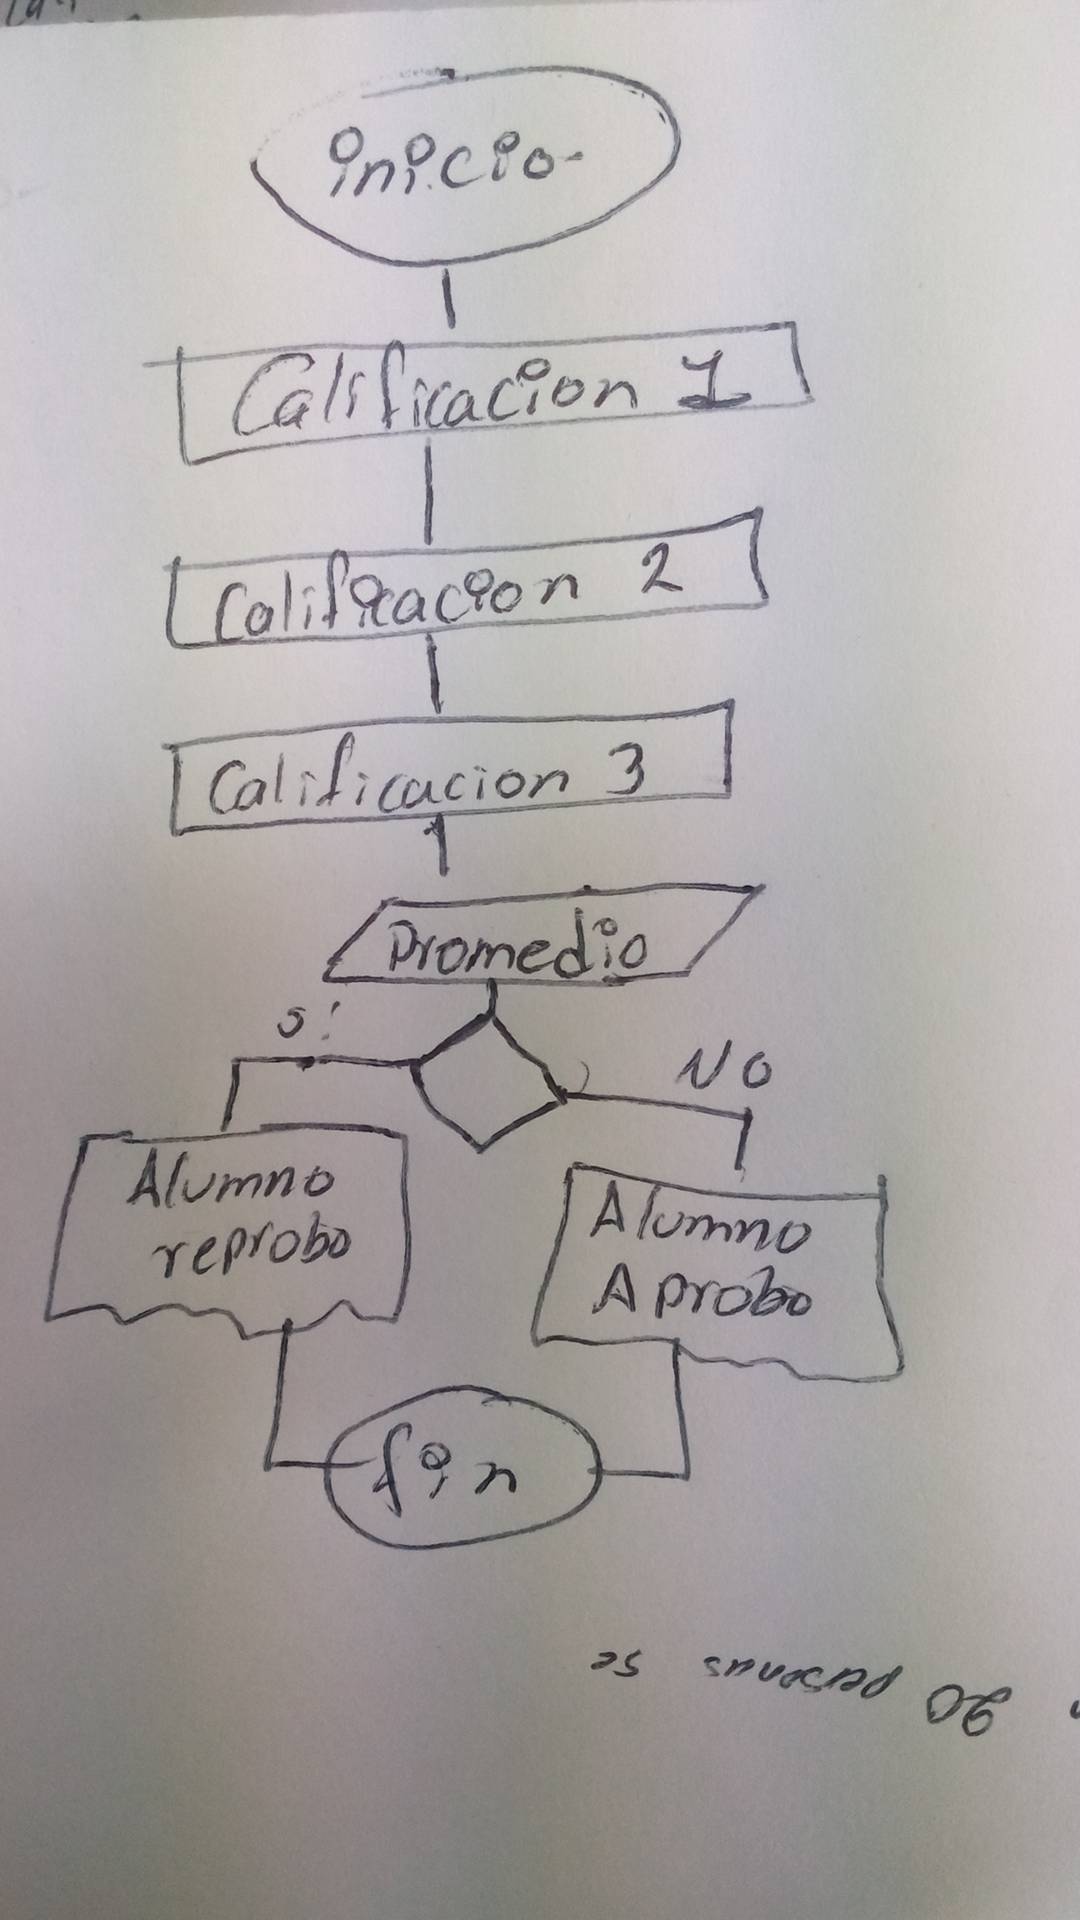 inicio
Calificacion 1
Calificacion 2
Calificacion 3
Promedio
Si
NO
Alumno
reprobo
Alumno
Aprobo
fin
20 personas se